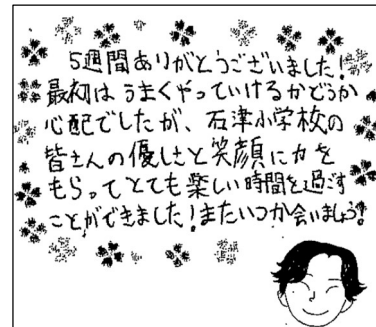 5週間ありがとうございました!
最初はうまくやっていけるかどうか
心配でしたが、石津小学校の
皆さんの優しさと笑顔に力を
もらってとても楽しい時間を過ごす
ことができました!またいつか会いましょう!